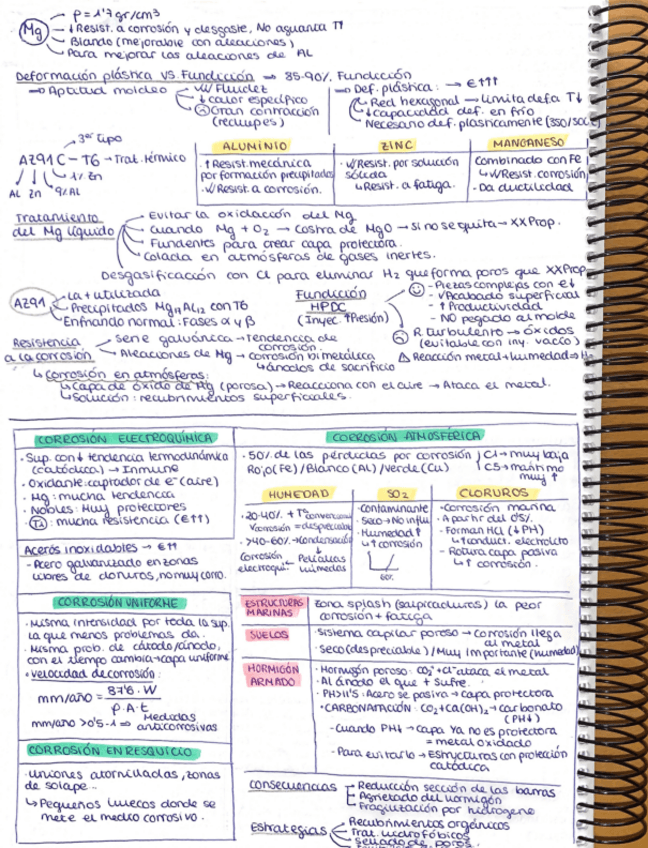 Mg
ρ = 1'7 gr/cm3
↓Resist. a corrosión y desgaste, No aguanta T↑
Blando (mejorable con aleaciones)
Para mejorar las aleaciones de AL
Deformación plástica VS. Fundición → 85-90% Fundición
→ Aptitud moldeo
Fluidez
↓ calor específico
Gran contracción
(rechupes)
→ Def. plástica: → €↑↑↑
Red hexagonal → limita def a T↓
↓ capacidad def. en frío
Necesario def. plásticamente
3er tipo
AZ91C - T6 → Trat. térmico
AL Zn 9% AL 1% Zn
ALUMINIO
↑ Resist. mecánica
por formación precipitados
Resist. a corrosión.
ZINC
Resist. por solución
sólida
↳ Resist. a fatiga.
MANGANESO
Combinado con Fe
↳ Resist. corrosión
· Da ductilidad
Tratamiento
del Mg líquido
- Evitar la oxidación del Mg
- Cuando Mg + O2 → Costra de MgO → si no se quita → XX Prop.
- Fundentes para crear capa protectora.
- Colada en atmósferas de gases inertes.
Desgasificación con Cl para eliminar H2 que forma poros que XX Prop
AZ91
La + utilizada
Precipitados Mg17AL12 con T6
Enfriando normal: Fases α y β
Fundición
HPDC
(Inyec. ↑Presión)
- Piezas complejas con e↓
- Acabado superficial
- ↑ Productividad
- NO pegado al molde
R. turbulento → óxidos
(evitable con iny. vacío)
Reacción metal + humedad ⇒ H2
Resistencia
a la corrosión
Serie galvánica → Tendencia de
corrosión.
Aleaciones de Mg → corrosión bimetálica
↳ ánodos de sacrificio
↳ Corrosión en atmósferas:
↳ Capa de óxido de Mg (porosa) → Reacciona con el aire → Ataca el metal.
↳ Solución: recubrimientos superficiales.
CORROSIÓN ELECTROQUÍMICA
· Sup. con ↓ tendencia termodinámica
(catódica) → Inmune
· Oxidante: captador de e- (aire)
· Mg: mucha tendencia
· Nobles: Muy protectores
· Ta: mucha resistencia (€↑↑)
Aceros inoxidables → €↑↑
- Acero galvanizado en zonas
libres de cloruros, no muy corro.
CORROSIÓN UNIFORME
· Misma intensidad por toda la sup.
La que menos problemas da.
· Misma prob. de cátodo/ánodo,
con el tiempo cambia → capa uniforme
· Velocidad de corrosión:
mm/año = 87'6 · W / ρ · A · t
mm/año >0'5-1 ⇒ Medidas
anticorrosivas
CORROSIÓN EN RESQUICIO
· Uniones atornilladas, zonas
de solape...
↳ Pequeños huecos donde se
mete el medio corrosivo.
CORROSIÓN ATMOSFÉRICA
· 50% de las pérdidas por corrosión
Rojo (Fe) / Blanco (AL) / Verde (Cu)
C1 → muy baja
C5 → marítimo
muy ↑
HUMEDAD
· 20-40% + Tª convencional
Vcorrosión = despreciable
· >40-60% → condensación
Corrosión
electroquí. ← Películas
húmedas
SO2
· Contaminante
· Seco → No influ.
· Humedad ↑
↳ ↑ corrosión
60%
CLORUROS
- Corrosión marina
- A partir del 0'5%
- Forman HCl (↓PH)
↳ ↑ conduct. electrolito
- Rotura capa pasiva
↳ ↑ corrosión.
ESTRUCTURAS
MARINAS
Zona splash (salpicaduras) la peor
corrosión + fatiga
SUELOS
· Sistema capilar poroso → corrosión llega
al metal
· Seco (despreciable) / Muy importante (humedad)
HORMIGÓN
ARMADO
· Hormigón poroso: CO2 + Cl- ataca el metal
· Al ánodo el que + sufre.
· PH>11'5: Acero se pasiva → capa protectora
· CARBONATACIÓN: CO2 + Ca(OH)2 → carbonato
(PH↓)
- Cuando PH↓ → capa ya no es protectora
= metal oxidado
- Para evitarlo → Estructuras con protección
catódica
Consecuencias
Reducción sección de las barras
Agrietado del hormigón
Fragilización por hidrógeno
Estrategias
Recubrimientos orgánicos
Trat. hidrofóbicos
Sellado de poros.